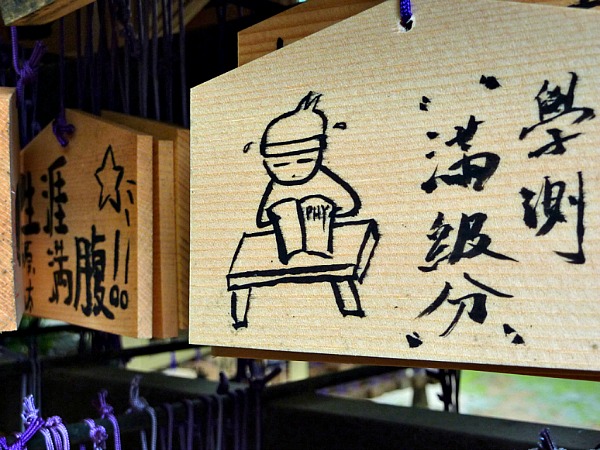 學測
"滿級分"
PHY
生涯
満腹!!